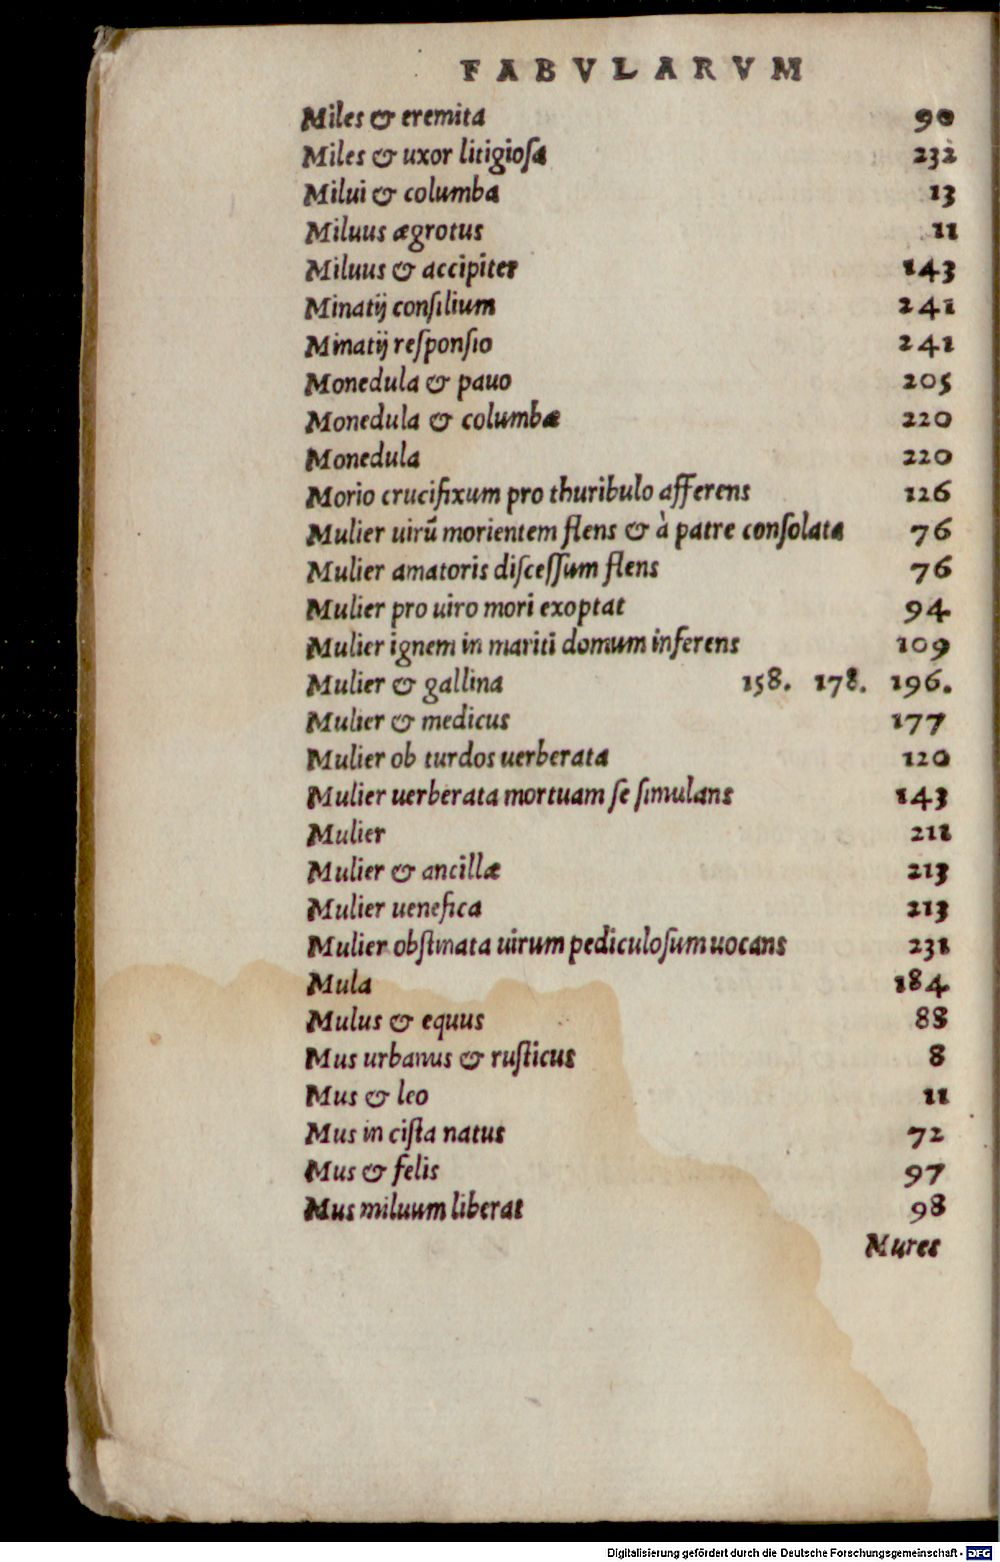 FABVLARVM
Miles & eremita 90
Miles & uxor litigioſa 232
Milui & columba 13
Miluus ægrotus 11
Miluus & accipiter 143
Minatij conſilium 241
Minatij reſponſio 241
Monedula & pauo 205
Monedula & columbæ 220
Monedula 220
Morio crucifixum pro thuribulo afferens 126
Mulier uirũ morientem flens & à patre conſolata 76
Mulier amatoris diſceſſum flens 76
Mulier pro uiro mori exoptat 94
Mulier ignem in mariti domum inferens 109
Mulier & gallina 158. 178. 196.
Mulier & medicus 177
Mulier ob turdos uerberata 120
Mulier uerberata mortuam ſe ſimulans 143
Mulier 211
Mulier & ancillæ 213
Mulier uenefica 213
Mulier obſtinata uirum pediculoſum uocans 231
Mula 184
Mulus & equus 88
Mus urbanus & ruſticus 8
Mus & leo 11
Mus in ciſta natus 72
Mus & felis 97
Mus miluum liberat 98
Mures
Digitalisierung gefördert durch die Deutsche Forschungsgemeinschaft - DFG